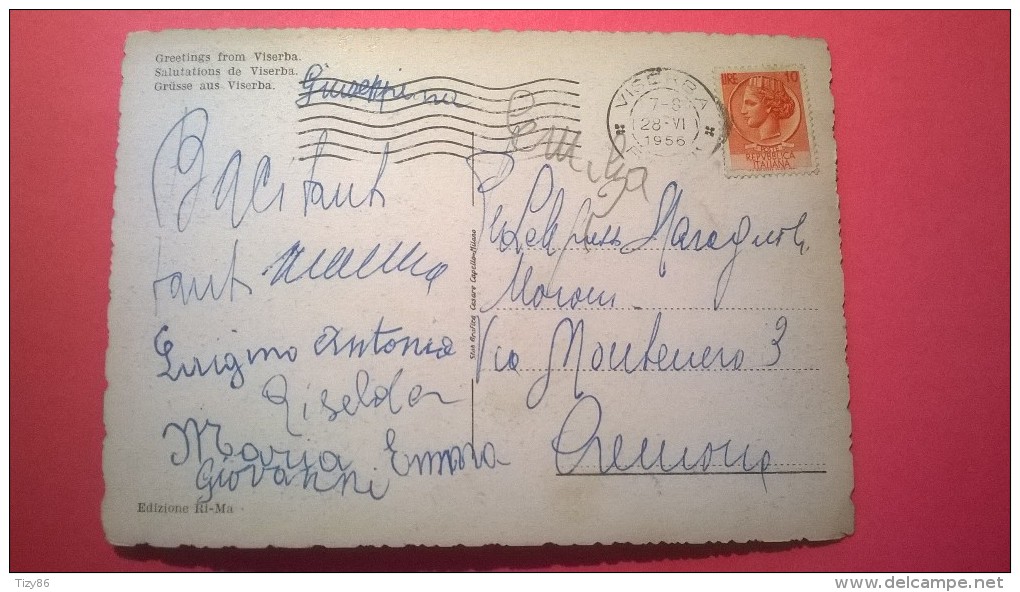 Greetings from Viserba.
Salutations de Viserba.
Grüsse aus Viserba.
Giuseppina
Baci tanti
tanti mamma
Luigino Antonia
Riselda
Maria Emma
Giovanni
Edizione Ri-Ma
Stab Grafico Cesare Capello-Milano
VISERBA
7-8
28-VI
1956
LIRE 10
POSTE
REPVBBLICA
ITALIANA
Maragnoli
Moroni
Via Montenero 3
Cremona
Tizy86
delcampe.net